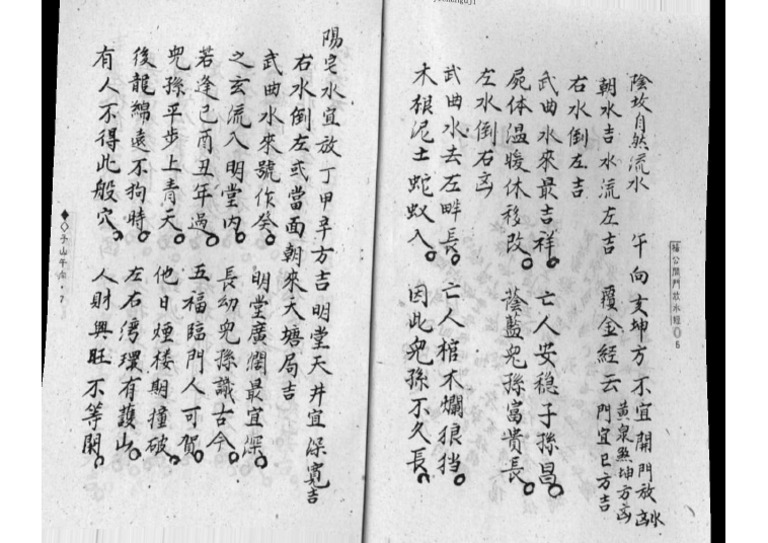 陰坟自然流水　午向亥坤方不宜開門放水凶
黄泉煞坤方凶
朝水吉水流左吉　覆金經云門宜巳方吉
右水倒左吉
武曲水來最吉祥。亡人安穏子孫昌。
屍体温暖休移改。蔭藍兒孫富贵長。
左水倒右凶
武曲水去左畔長。亡人棺木爛狼挡。
木根泥土蛇蚁入。因此兒孫不久長。
楊公開門放水經 6
陽宅水宜放丁甲辛方吉明堂天井宜深寬吉
右水倒左或當面朝來天塘局吉
武曲水來號作癸。明堂廣濶最宜深。
之玄流入明堂内。長幼兒孫識古今。
若逢己酉丑年過。五福臨門人可賀。
兒孫平步上青天。他日煙楼期撞破。
後龍綿遠不狗時。左右彎環有護山。
有人不得此般穴。人財興旺不等閑。
子山午向·7